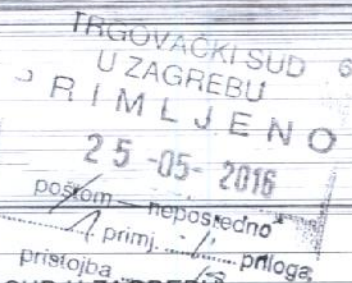 TRGOVAČKI SUD 6
U ZAGREBU
PRIMLJENO
25 -05- 2016
poštom — neposredno
1 primj. / priloga
pristojba
SUD U ZAGREBU